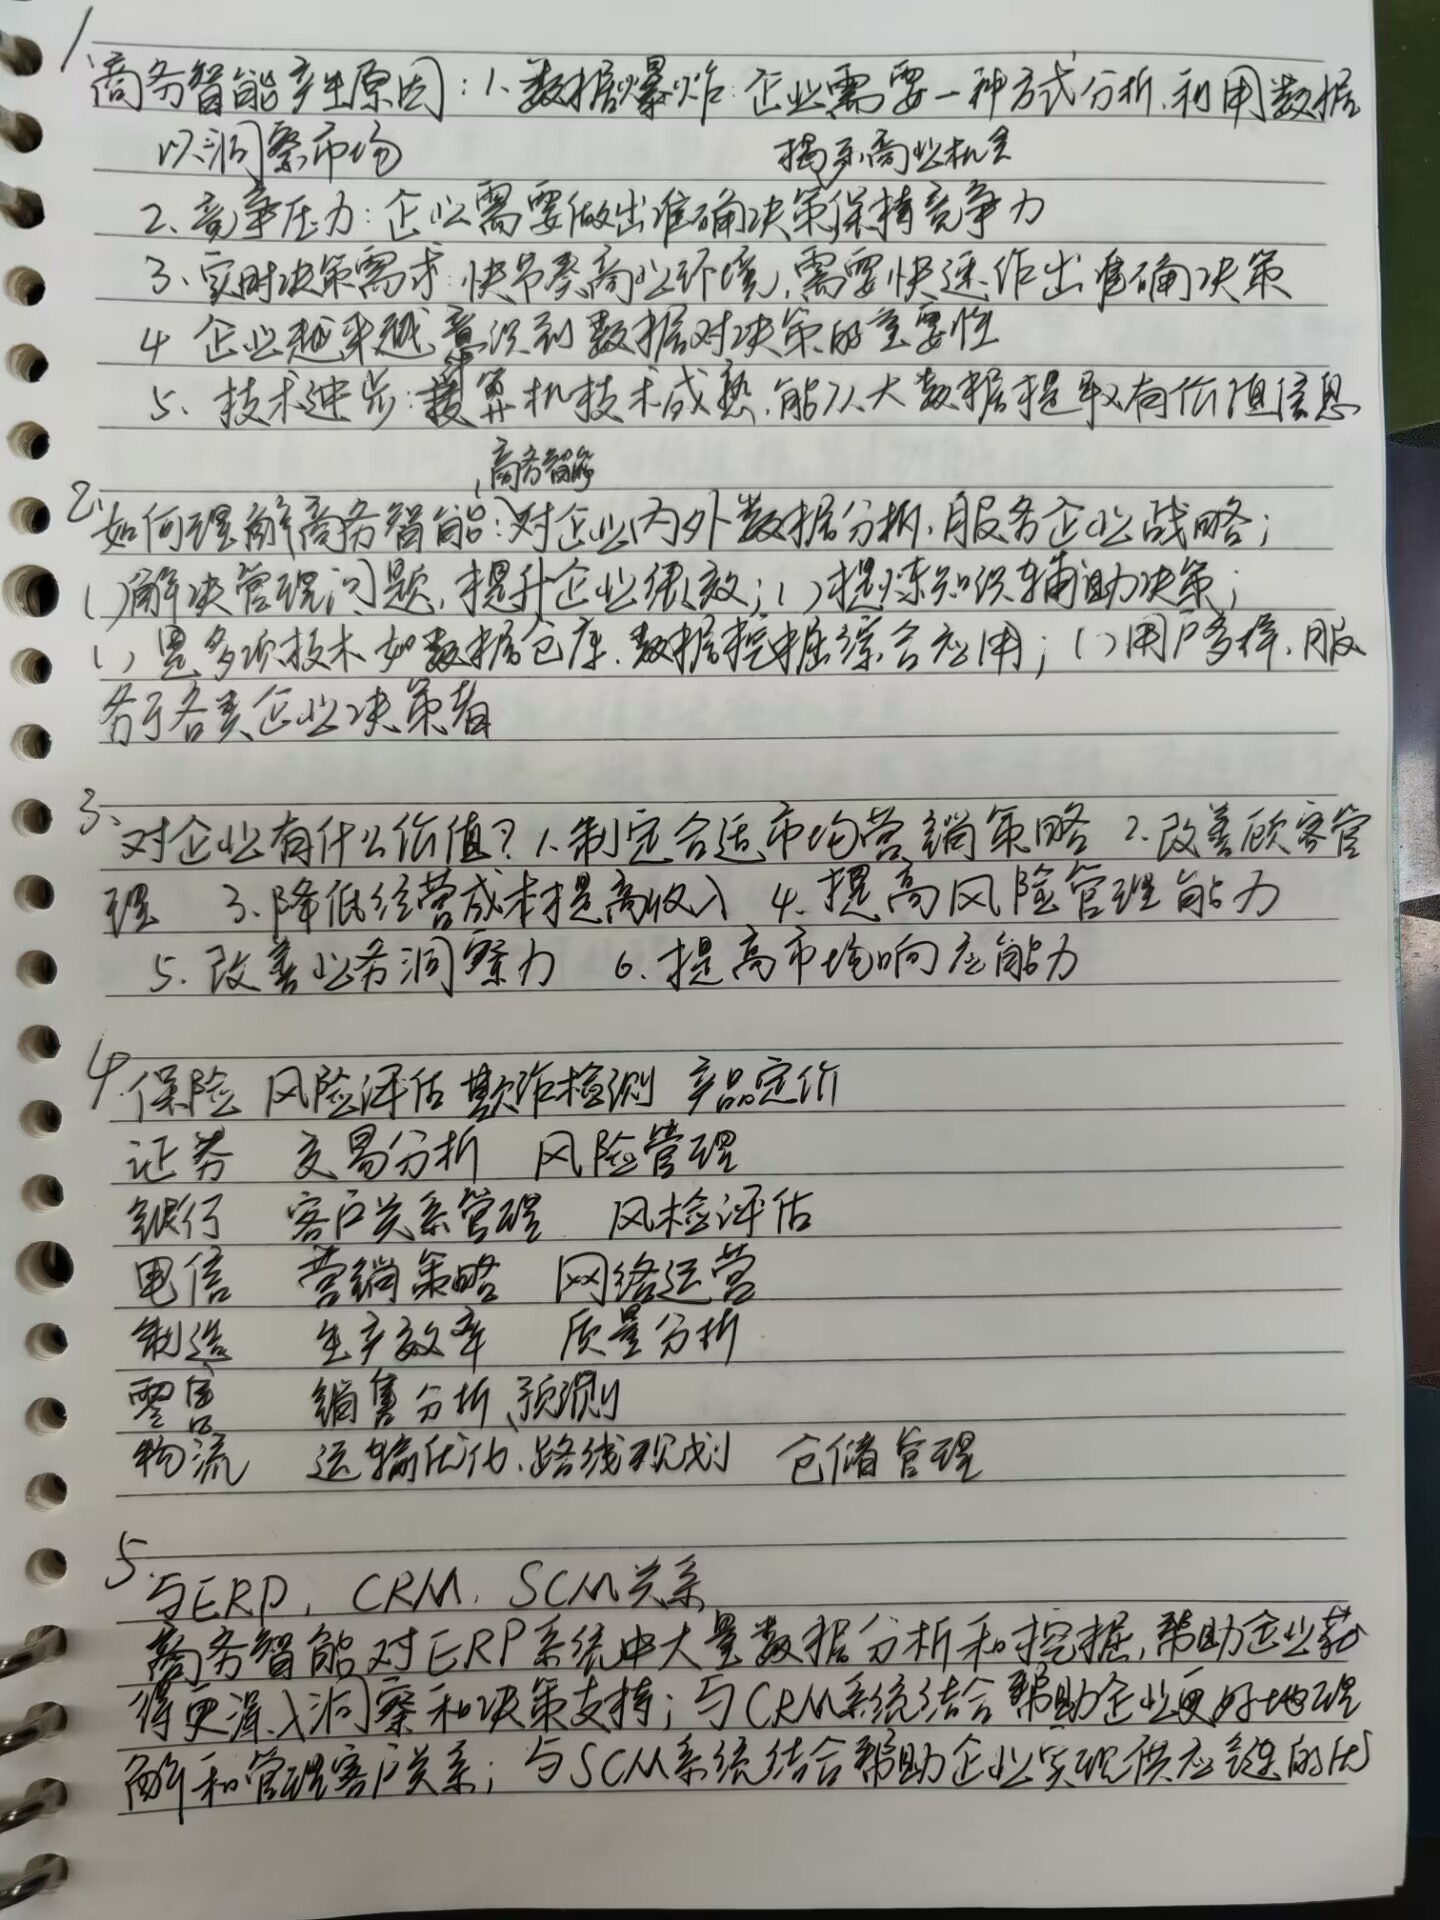 1、
商务智能产生原因：1、数据爆炸：企业需要一种方式分析、利用数据
以洞察市场 揭示商业机会
2、竞争压力：企业需要做出准确决策保持竞争力
3、实时决策需求：快节奏商业环境，需要快速作出准确决策
4 企业越来越意识到数据对决策的重要性
5、技术进步：算机技术成熟，能从大数据提取有价值信息
商务智能
2、如何理解商务智能：对企业内外数据分析，服务企业战略；
（）解决管理问题，提升企业绩效；（）提炼知识辅助决策；
（）是多项技术如数据仓库、数据挖掘综合应用；（）用户多样，服
务于各类企业决策者
3、对企业有什么价值？1、制定合适市场营销策略 2、改善顾客管
理 3、降低经营成本提高收入 4、提高风险管理能力
5、改善业务洞察力 6、提高市场响应能力
4、保险 风险评估 欺诈检测 产品定价
证券 交易分析 风险管理
银行 客户关系管理 风检评估
电信 营销策略 网络运营
制造 生产效率 质量分析
零售 销售分析、预测
物流 运输优化、路线规划 仓储管理
5、与ERP、CRM、SCM关系
商务智能对ERP系统中大量数据分析和挖掘，帮助企业获
得更深入洞察和决策支持；与CRM系统结合帮助企业更好地理
解和管理客户关系；与SCM系统结合帮助企业实现供应链的优